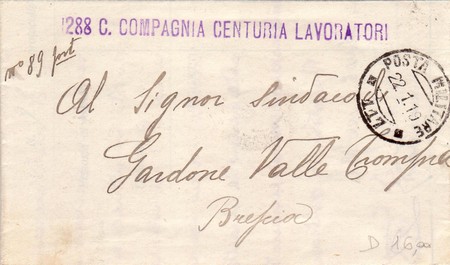 1288 C. COMPAGNIA CENTURIA LAVORATORI
n° 89 port
POSTA MILITARE
22.1.19
Al Signor Sindaco
Gardone Valle Trompia
Brescia
D 16,00